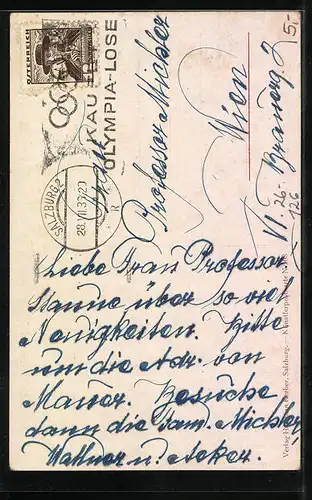 5,-
ÖSTERREICH
KAUFT
OLYMPIA-LOSE
SALZBURG 2
Frau
Professor Michler
Wien
VI.
126
Liebe Frau Professor
Staune über so viel
Neuigkeiten. Bitte
um die Adr. von
Mauer. Besuche
dann die Fam. Michler
Wallner u. Acker.
Salzburg. – Künstlerpostkarte